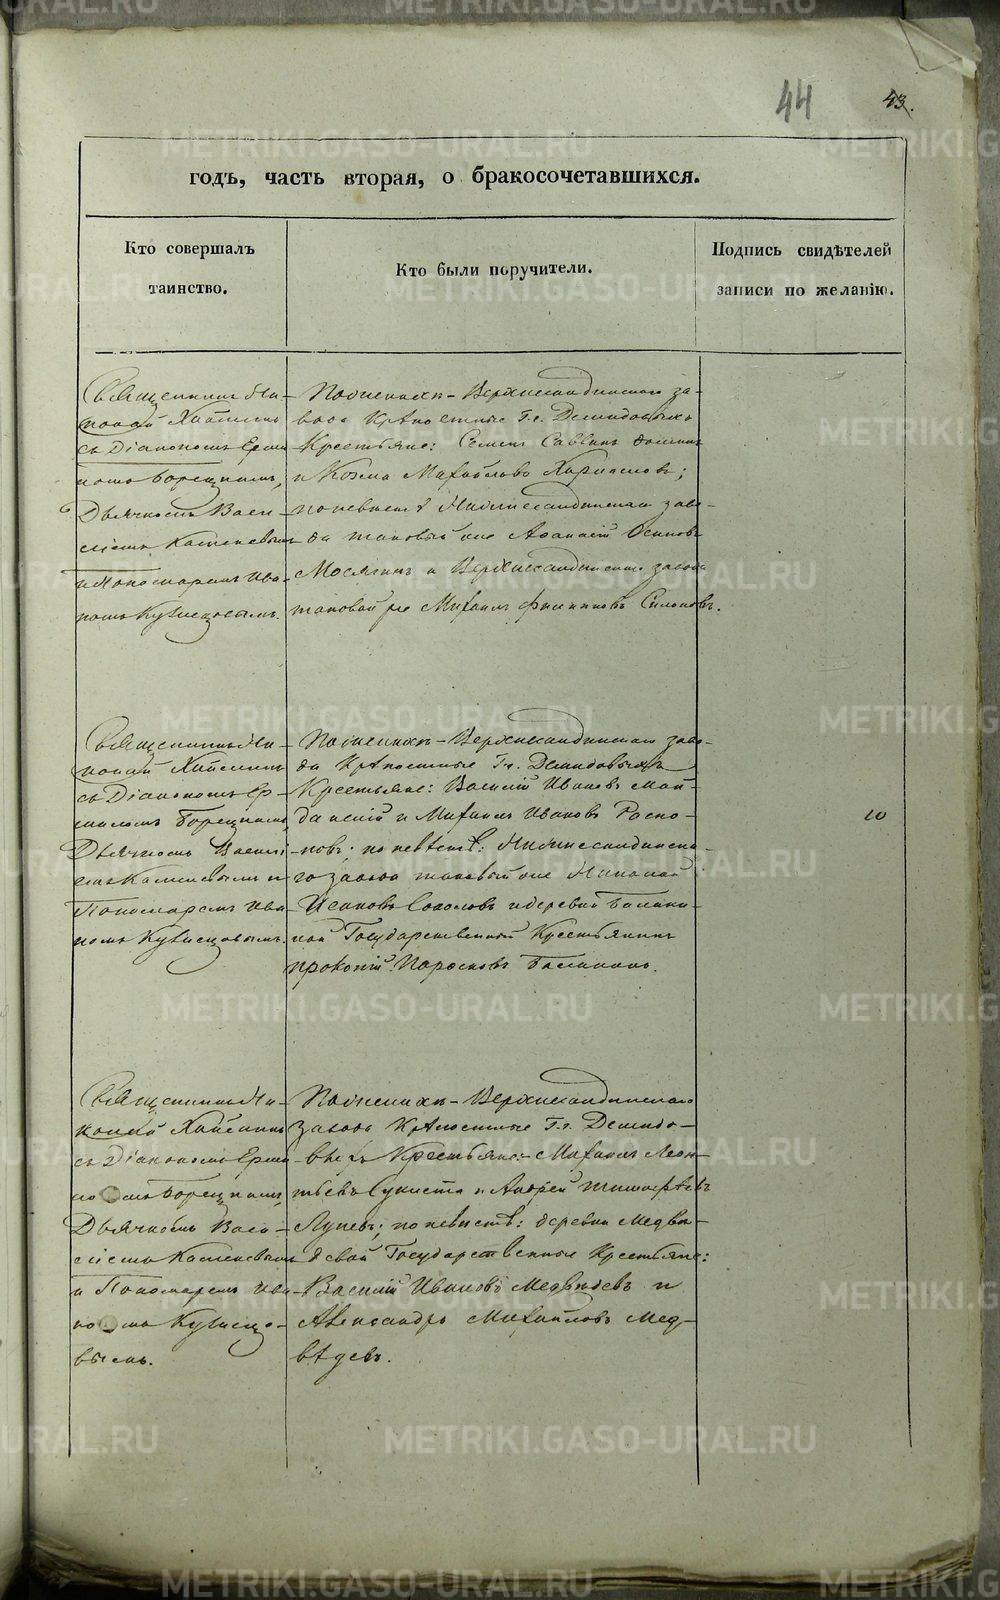 44 43.
годъ, часть вторая, о бракосочетавшихся.
Кто совершалъ
таинство.
Кто были поручители.
Подпись свидѣтелей
записи по желанію.
Священникъ Ни-
колай Хайсминъ
съ Діакономъ Ерми
ломъ Борецкимъ,
Дьячкомъ Васи-
ліемъ Каменевымъ
и Пономаремъ Ива-
номъ Кузнецовымъ.
По женихѣ - Верхнесалдинскаго за-
вода Крѣпостные Гг. Демидовыхъ
Крестьяне: Семенъ Саввинъ
и Козма Михайловъ
по невѣстѣ Нижнесалдинскаго заво-
да таковый же Аѳанасій Осиповъ
Мосягинъ и Верхнесалдинскаго завода
таковой же Михаилъ Филиповъ
Священникъ Ни-
колай Хайсминъ
съ Діакономъ Ер-
миломъ Борецкимъ,
Дьячкомъ Василі
емъ Каменевымъ и
Пономаремъ Ива
номъ Кузнецовымъ.
По женихѣ - Верхнесалдинскаго заво-
да Крѣпостные Гг. Демидовыхъ
Крестьяне: Василій Ивановъ Май-
данскій и Михаилъ Ивановъ Распо-
повъ; по невѣстѣ: Нижнесалдинска-
го завода таковый же Николай
Исаковъ Соколовъ и деревни Балаки-
ной Государственный Крестьянинъ
Прокопій Балакинъ.
10
Священникъ Ни-
колай Хайсминъ
съ Діакономъ Ерми
ломъ Борецкимъ,
Дьячкомъ Васи-
ліемъ Каменевымъ
и Пономаремъ Ива
номъ Кузнецо-
вымъ.
По женихѣ - Верхнесалдинскаго
завода Крѣпостные Гг. Демидо-
выхъ Крестьяне: Михаилъ Леон-
тьевъ и Андрей Тимофѣевъ
Лупевъ; по невѣстѣ: деревни Медвѣ-
девой Государственные Крестьяне:
Василій Ивановъ Медвѣдевъ и
Александръ Михайловъ Мед-
вѣдевъ.
METRIKI.GASO-URAL.RU